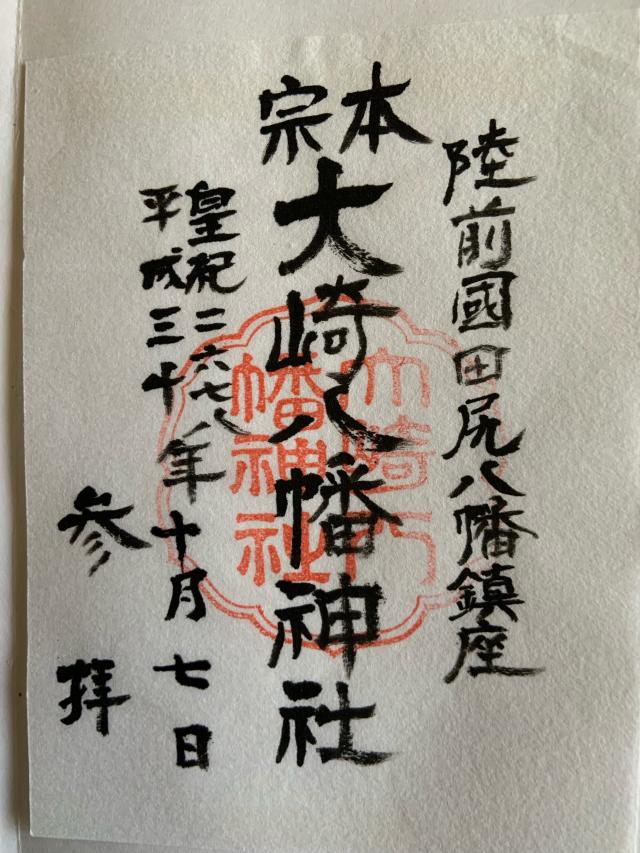 陸前國田尻八幡鎮座
本宗
大崎八幡神社
皇紀二六七八年
平成三十年十月七日
参拝
大崎八幡神社